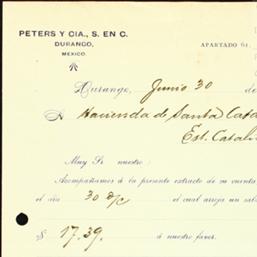 PETERS Y CIA., S. EN C.
DURANGO,
MEXICO.
APARTADO 61.
Durango, Junio 30 de
A Hacienda de Santa Cata
Est. Catali
Muy Sr nuestro:
Acompañamos á la presente extracto de su cuenta
el dia 30 a/c el cual arroja un sal
$ 17.39. á nuestro favor.